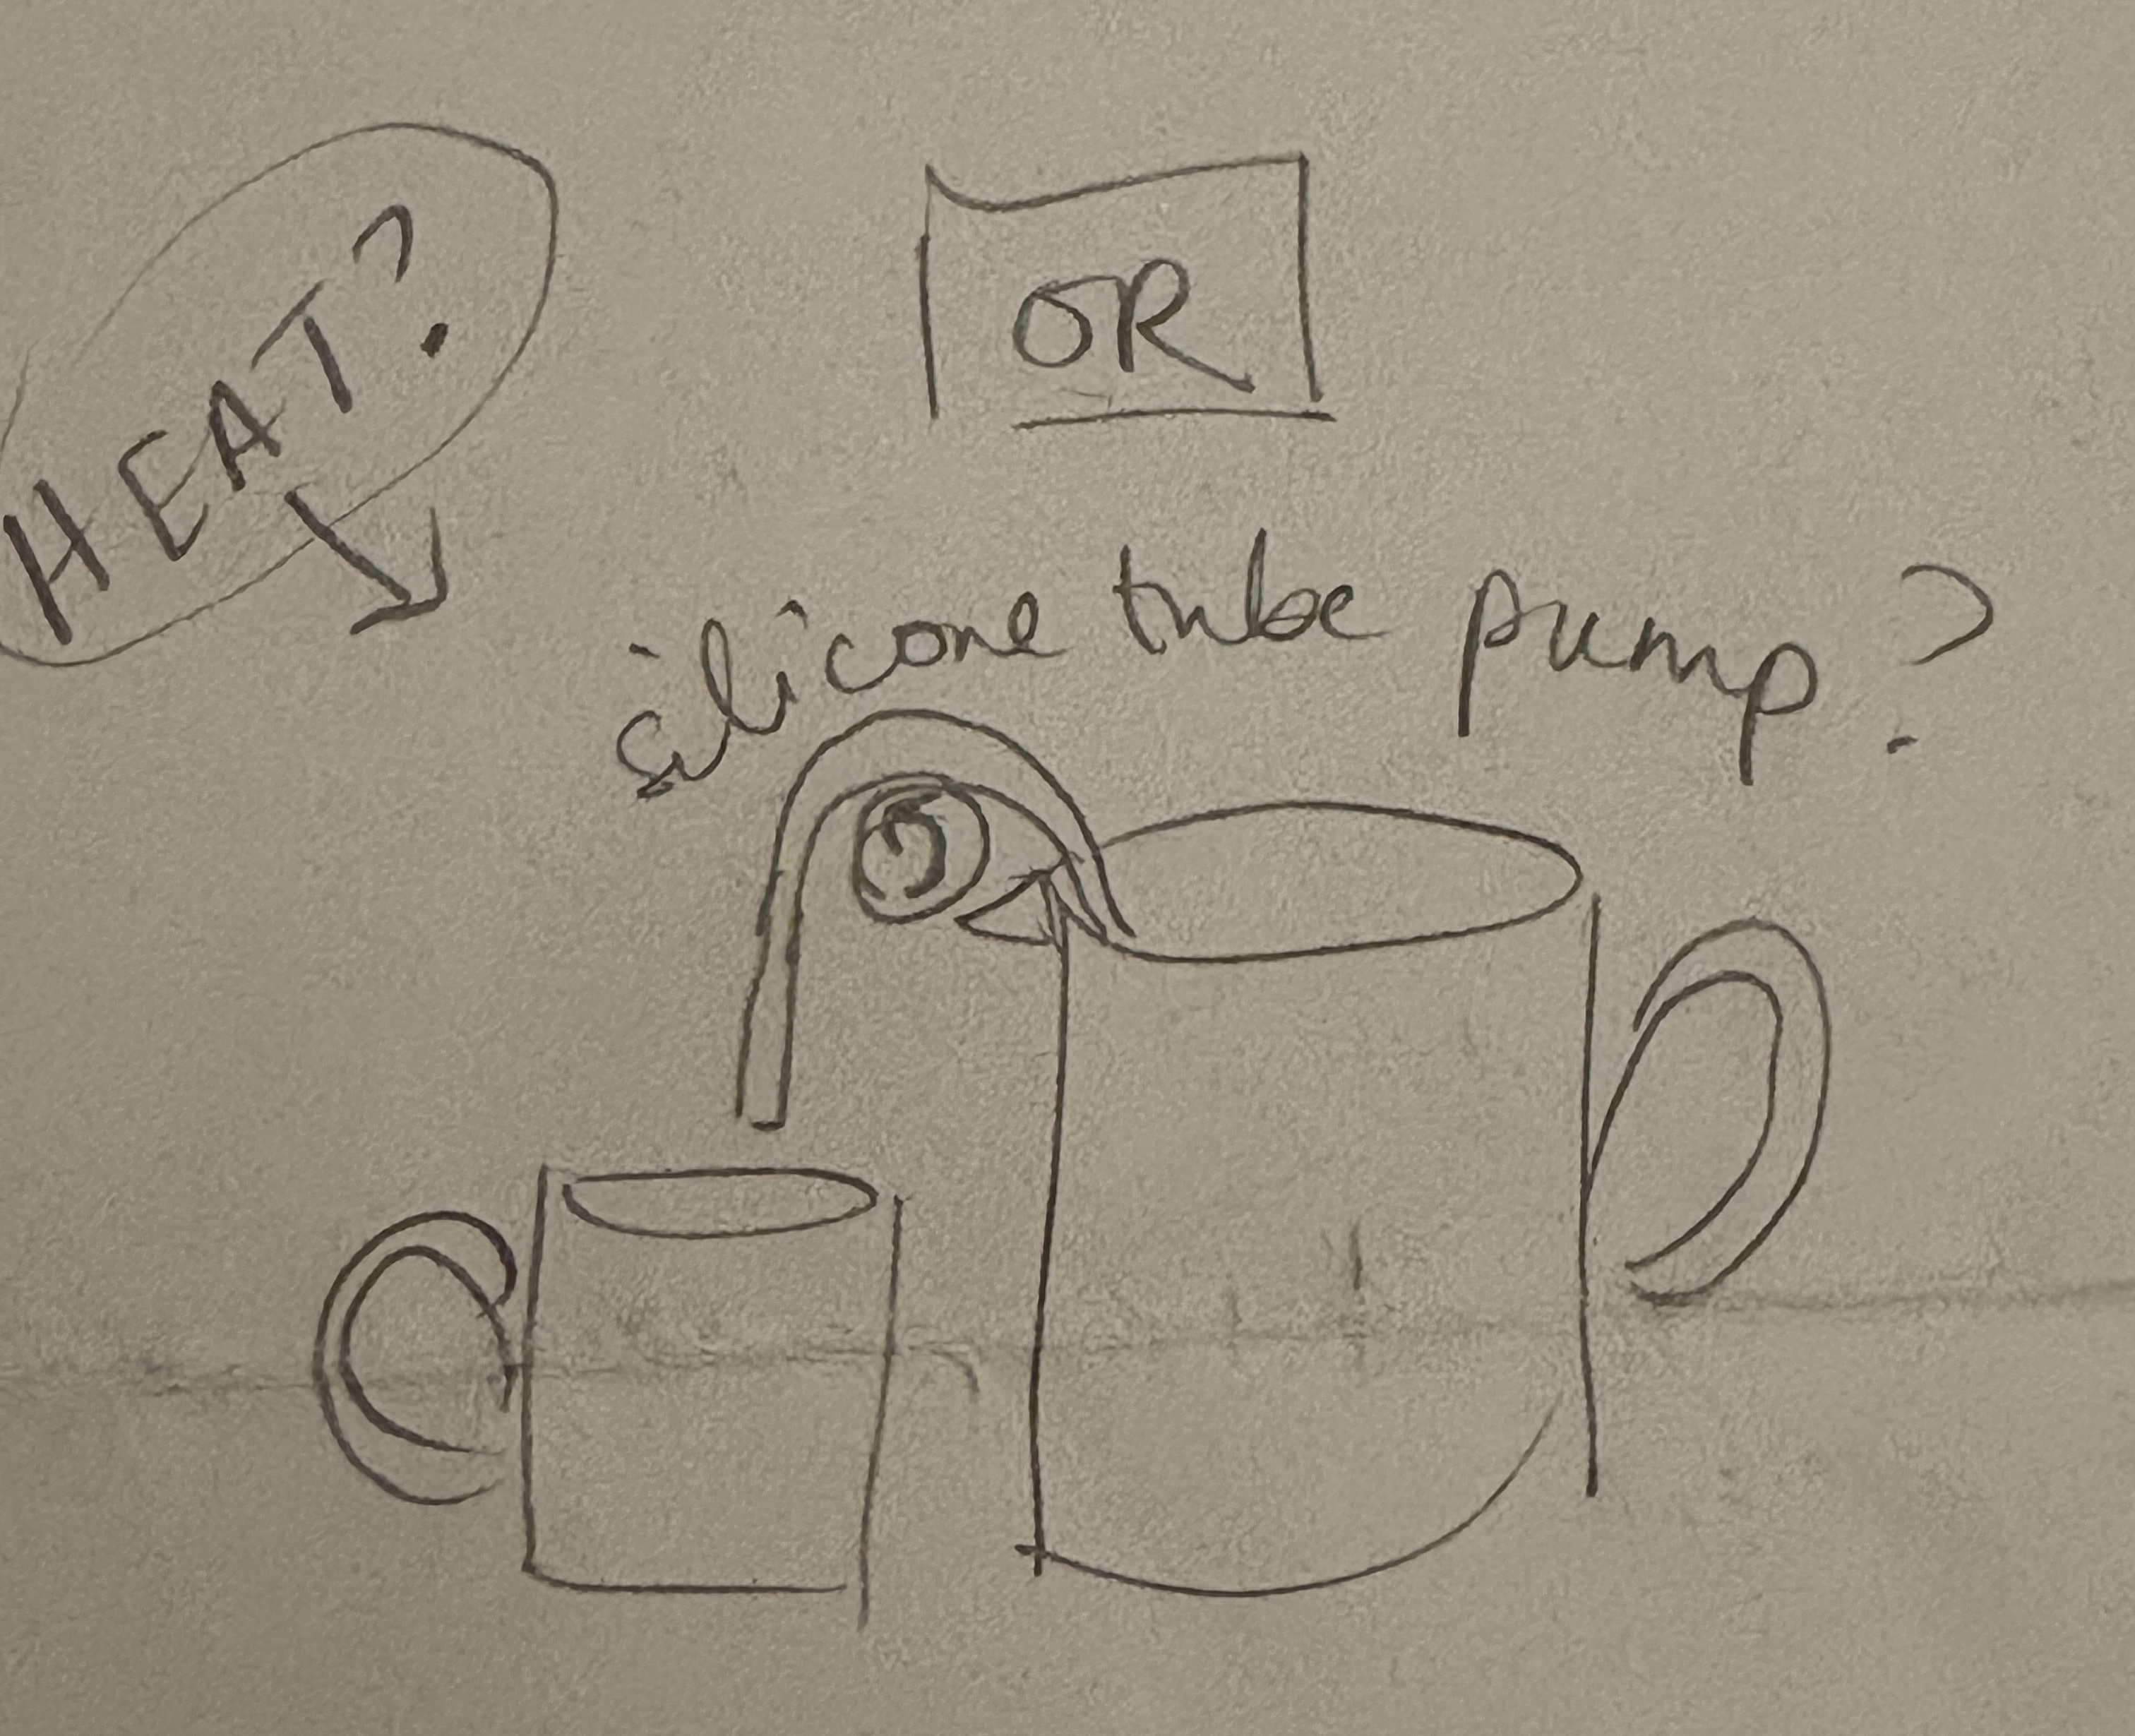 HEAT?
OR
silicone tube pump?